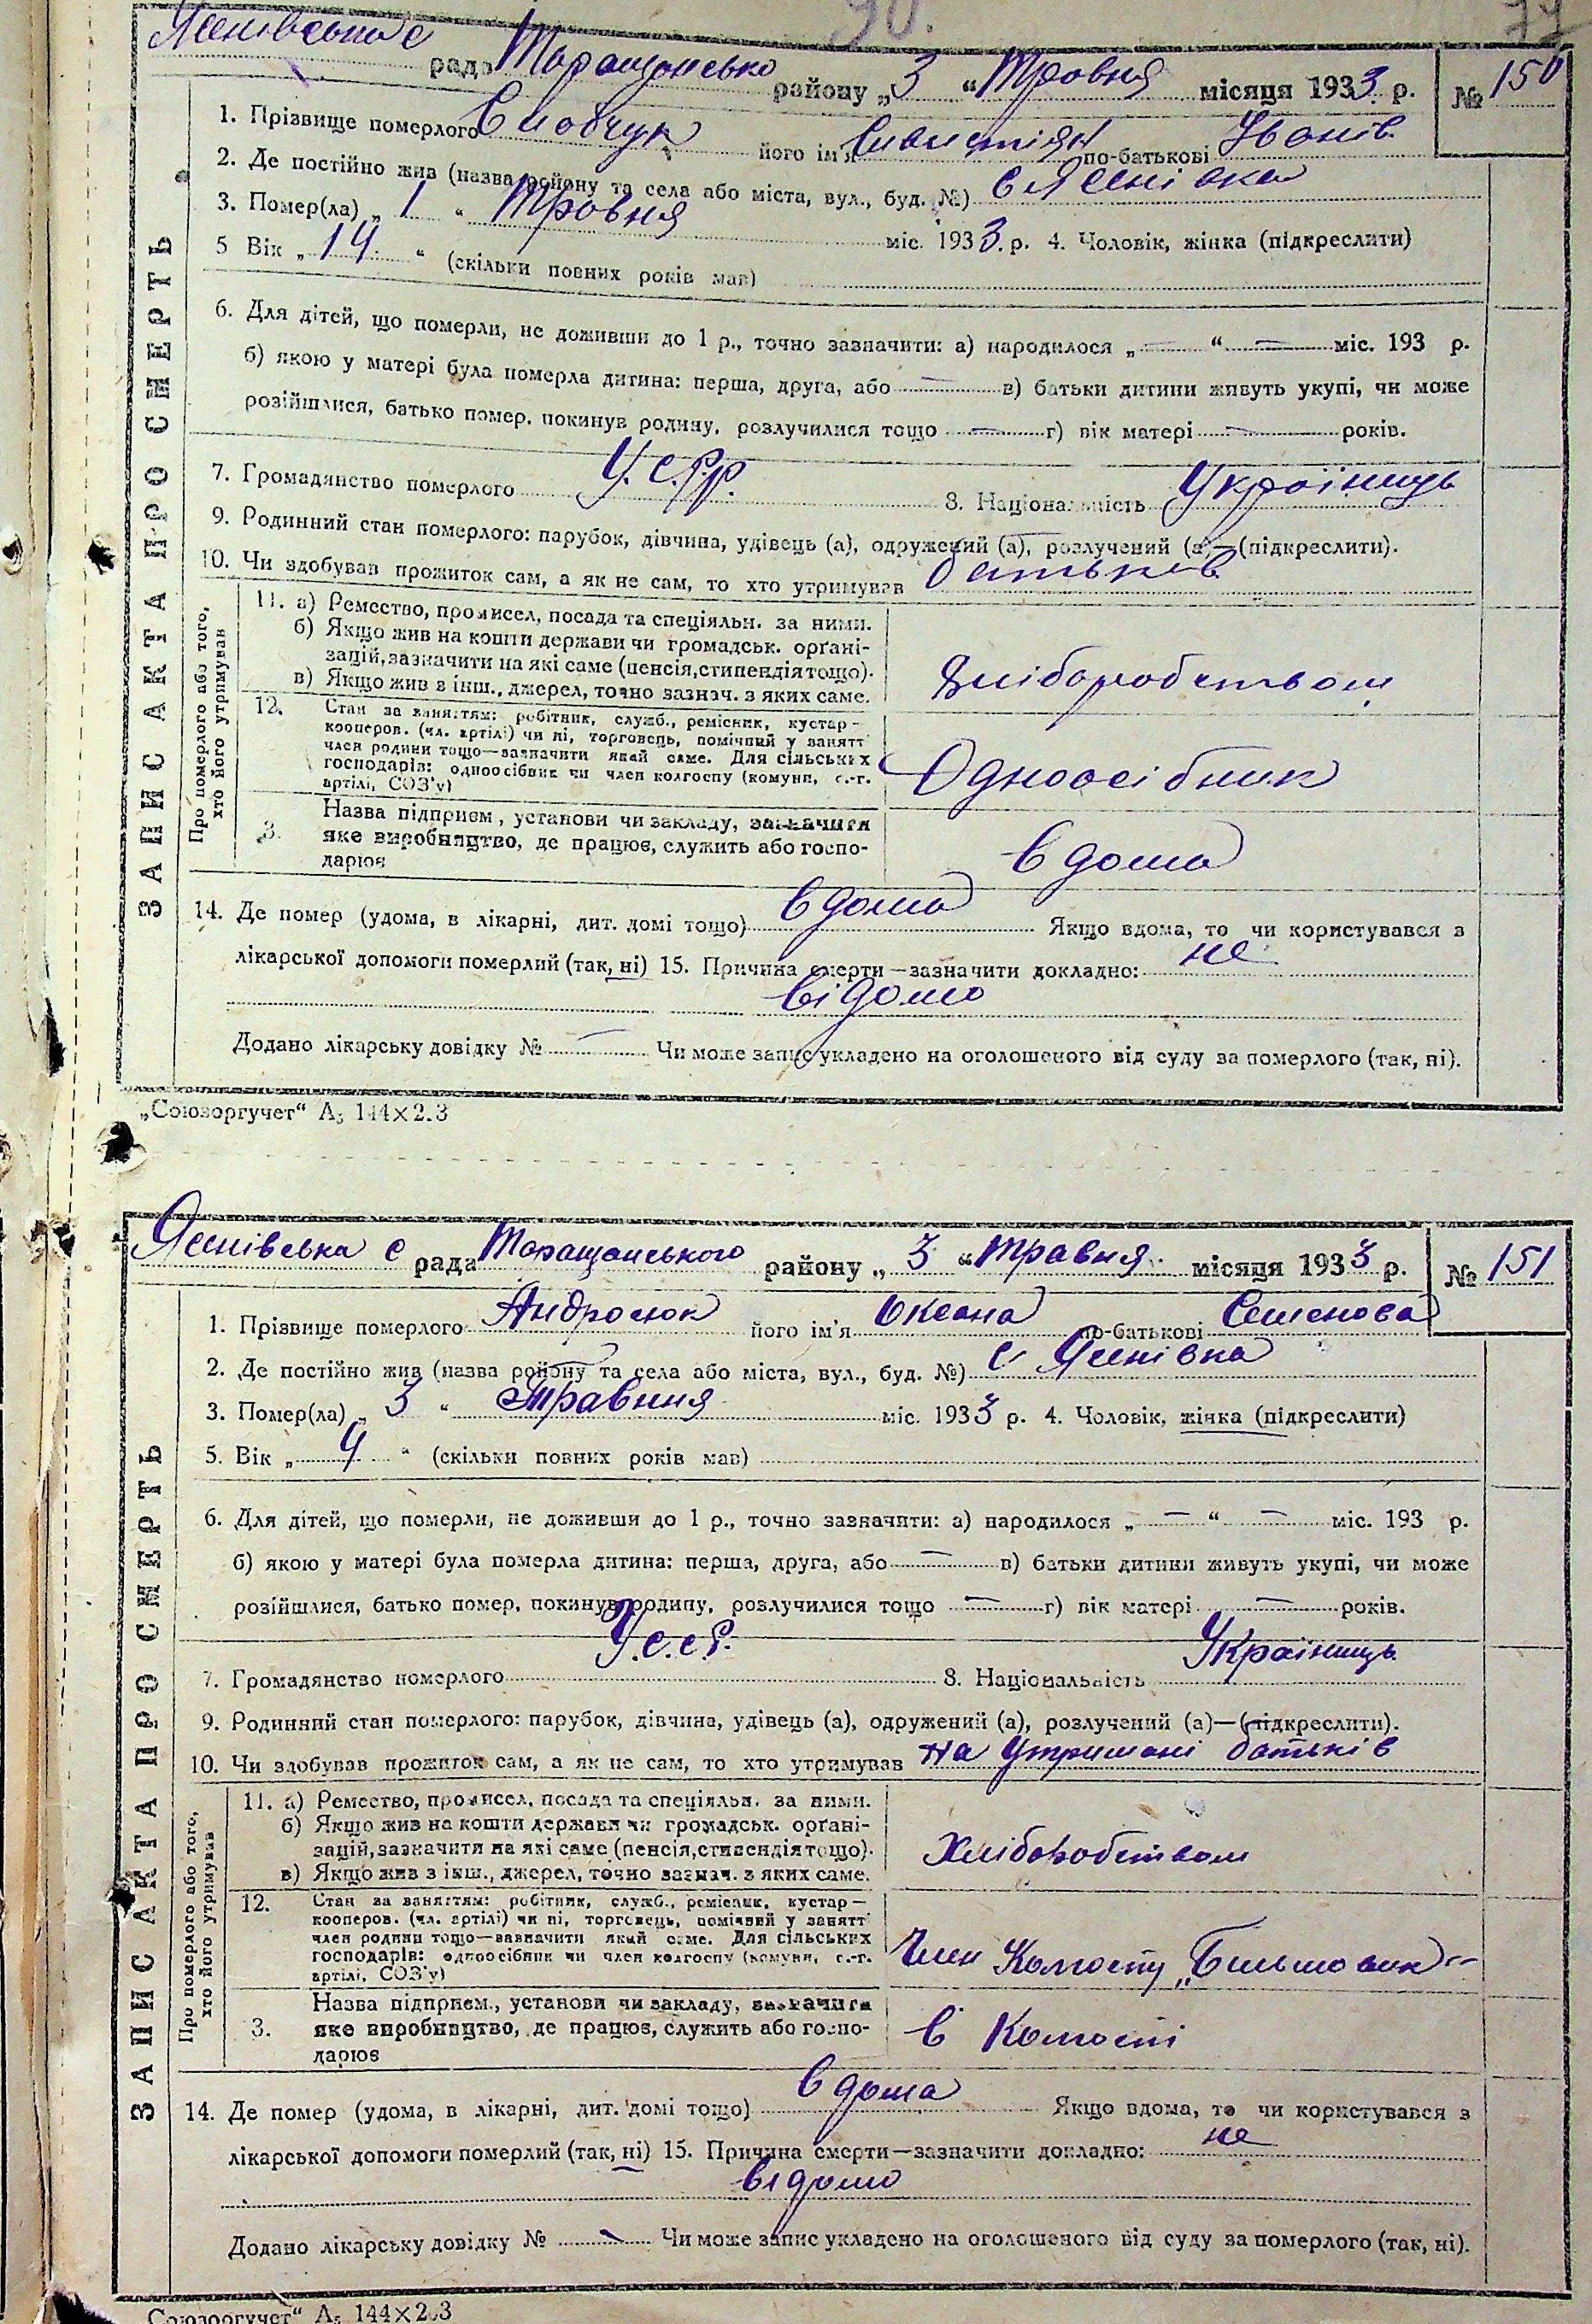 90. 77
Ясенівська с рада Таращансько району „ 3 “ Травня місяця 1933 р. № 150
1. Прізвище померлого його ім'я по-батькові Іванів
2. Де постійно жив (назва району та села або міста, вул., буд. №) с Ясенівка
3. Помер(ла) „ 1 “ Травня міс. 1933. р. 4. Чоловік, жінка (підкреслити)
5 Вік „ 14 “ (скільки повних років мав)
6. Для дітей, що померли, не доживши до 1 р., точно зазначити: а) народилося „ — “ — міс. 193 р.
б) якою у матері була померла дитина: перша, друга, або — в) батьки дитини живуть укупі, чи може
розійшлися, батько помер, покинув родину, розлучилися тощо — г) вік матері — років.
7. Громадянство померлого У.С.Р.р. 8. Національність Українець
9. Родинний стан померлого: парубок, дівчина, удівець (а), одружений (а), розлучений (а)—(підкреслити).
10. Чи здобував прожиток сам, а як не сам, то хто утримував батьків
Про померлого або того, хто його утримував
11. а) Ремество, промисел, посада та спеціяльн. за ними.
б) Якщо жив на кошти держави чи громадськ. орґані-
зацій, зазначити на які саме (пенсія, стипендія тощо).
в) Якщо жив з інш., джерел, точно зазнач. з яких саме.
Хліборобством
12. Стан за заняттям: робітник, служб., ремісник, кустар—
кооперов. (чл. артілі) чи ні, торговець, помічний у занятті
член родини тощо—зазначити який саме. Для сільських
господарів: одноосібник чи член колгоспу (комуни, с.-г.
артілі, СОЗ'у)
Одноосібник
3. Назва підприєм., установи чи закладу, зазначити
яке виробництво, де працює, служить або госпо-
дарює
вдома
14. Де помер (удома, в лікарні, дит. домі тощо) вдома Якщо вдома, то чи користувався з
лікарської допомоги померлий (так, ні) 15. Причина смерти—зазначити докладно: не
відомо
Додано лікарську довідку № — Чи може запис укладено на оголошеного від суду за померлого (так, ні).
ЗАПИС АКТА ПРО СМЕРТЬ
„Союзоргучет“ А5 144×2.3
Ясенівська с рада Таращанського району „ 3 “ Травня місяця 1933 р. № 151
1. Прізвище померлого Андросюк його ім'я Оксана по-батькові Семенова
2. Де постійно жив (назва району та села або міста, вул., буд. №) с Ясенівка
3. Помер(ла) „ 3 “ Травння міс. 1933 р. 4. Чоловік, жінка (підкреслити)
5. Вік „ 4 “ (скільки повних років мав)
6. Для дітей, що померли, не доживши до 1 р., точно зазначити: а) народилося „ — “ — міс. 193 р.
б) якою у матері була померла дитина: перша, друга, або — в) батьки дитини живуть укупі, чи може
розійшлися, батько помер, покинув родину, розлучилися тощо — г) вік матері — років.
7. Громадянство померлого У.С.С.Р. 8. Національність Українець
9. Родинний стан померлого: парубок, дівчина, удівець (а), одружений (а), розлучений (а)—(підкреслити).
10. Чи здобував прожиток сам, а як не сам, то хто утримував на утримані батьків
Про померлого або того, хто його утримував
11. а) Ремество, промисел, посада та спеціяльн. за ними.
б) Якщо жив на кошти держави чи громадськ. орґані-
зацій, зазначити на які саме (пенсія, стипендія тощо).
в) Якщо жив з інш., джерел, точно зазнач. з яких саме.
Хліборобством
12. Стан за заняттям: робітник, служб., ремісник, кустар—
кооперов. (чл. артілі) чи ні, торговець, помічний у занятті
член родини тощо—зазначити який саме. Для сільських
господарів: одноосібник чи член колгоспу (комуни, с.-г.
артілі, СОЗ'у)
Член Колгоспу „Більшовик“
3. Назва підприєм., установи чи закладу, зазначити
яке виробництво, де працює, служить або госпо-
дарює
в Колгоспі
14. Де помер (удома, в лікарні, дит. домі тощо) вдома Якщо вдома, то чи користувався з
лікарської допомоги померлий (так, ні) 15. Причина смерти—зазначити докладно: не
відомо
Додано лікарську довідку № — Чи може запис укладено на оголошеного від суду за померлого (так, ні).
ЗАПИС АКТА ПРО СМЕРТЬ
Союзоргучет“ А5 144×2.3